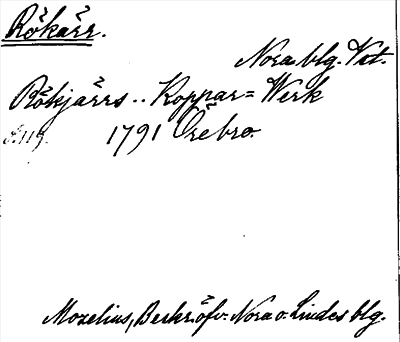 Rökärr.
Nora blg. Vst.
Rökjärrs.. Koppar= Werk
s. 119. 1791 Örebro.
Mozelius, Beskr. öfv. Nora o. Lindes blg.